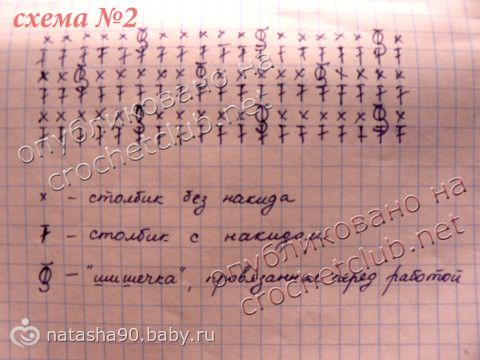 схема №2
х – столбик без накида
† – столбик с накидом
– "шишечка", провязанная перед работой
опубликовано на
crochetclub.net
опубликовано на
crochetclub.net
natasha90.baby.ru